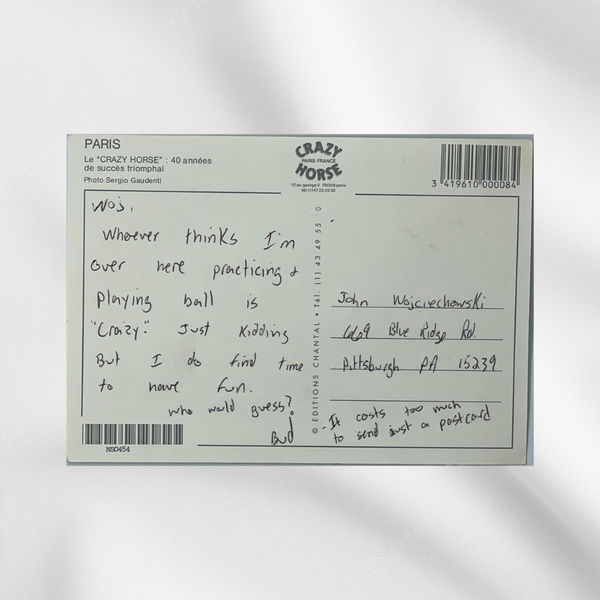 PARIS
Le "CRAZY HORSE" : 40 années
de succès triomphal
Photo Sergio Gaudenti
CRAZY
PARIS-FRANCE
HORSE
12 av. george V 75008 paris
3 419610 000084
Woj,
Whoever thinks I'm
over here practicing &
playing ball is
"Crazy". Just Kidding
But I do find time
to have fun.
who would guess?
Bud
NS0454
© EDITIONS CHANTAL • Tél. (1) 43 49 55 0
John Wojciechowski
669 Blue Ridge Rd.
Pittsburgh PA 15239
-It costs too much
to send just a postcard